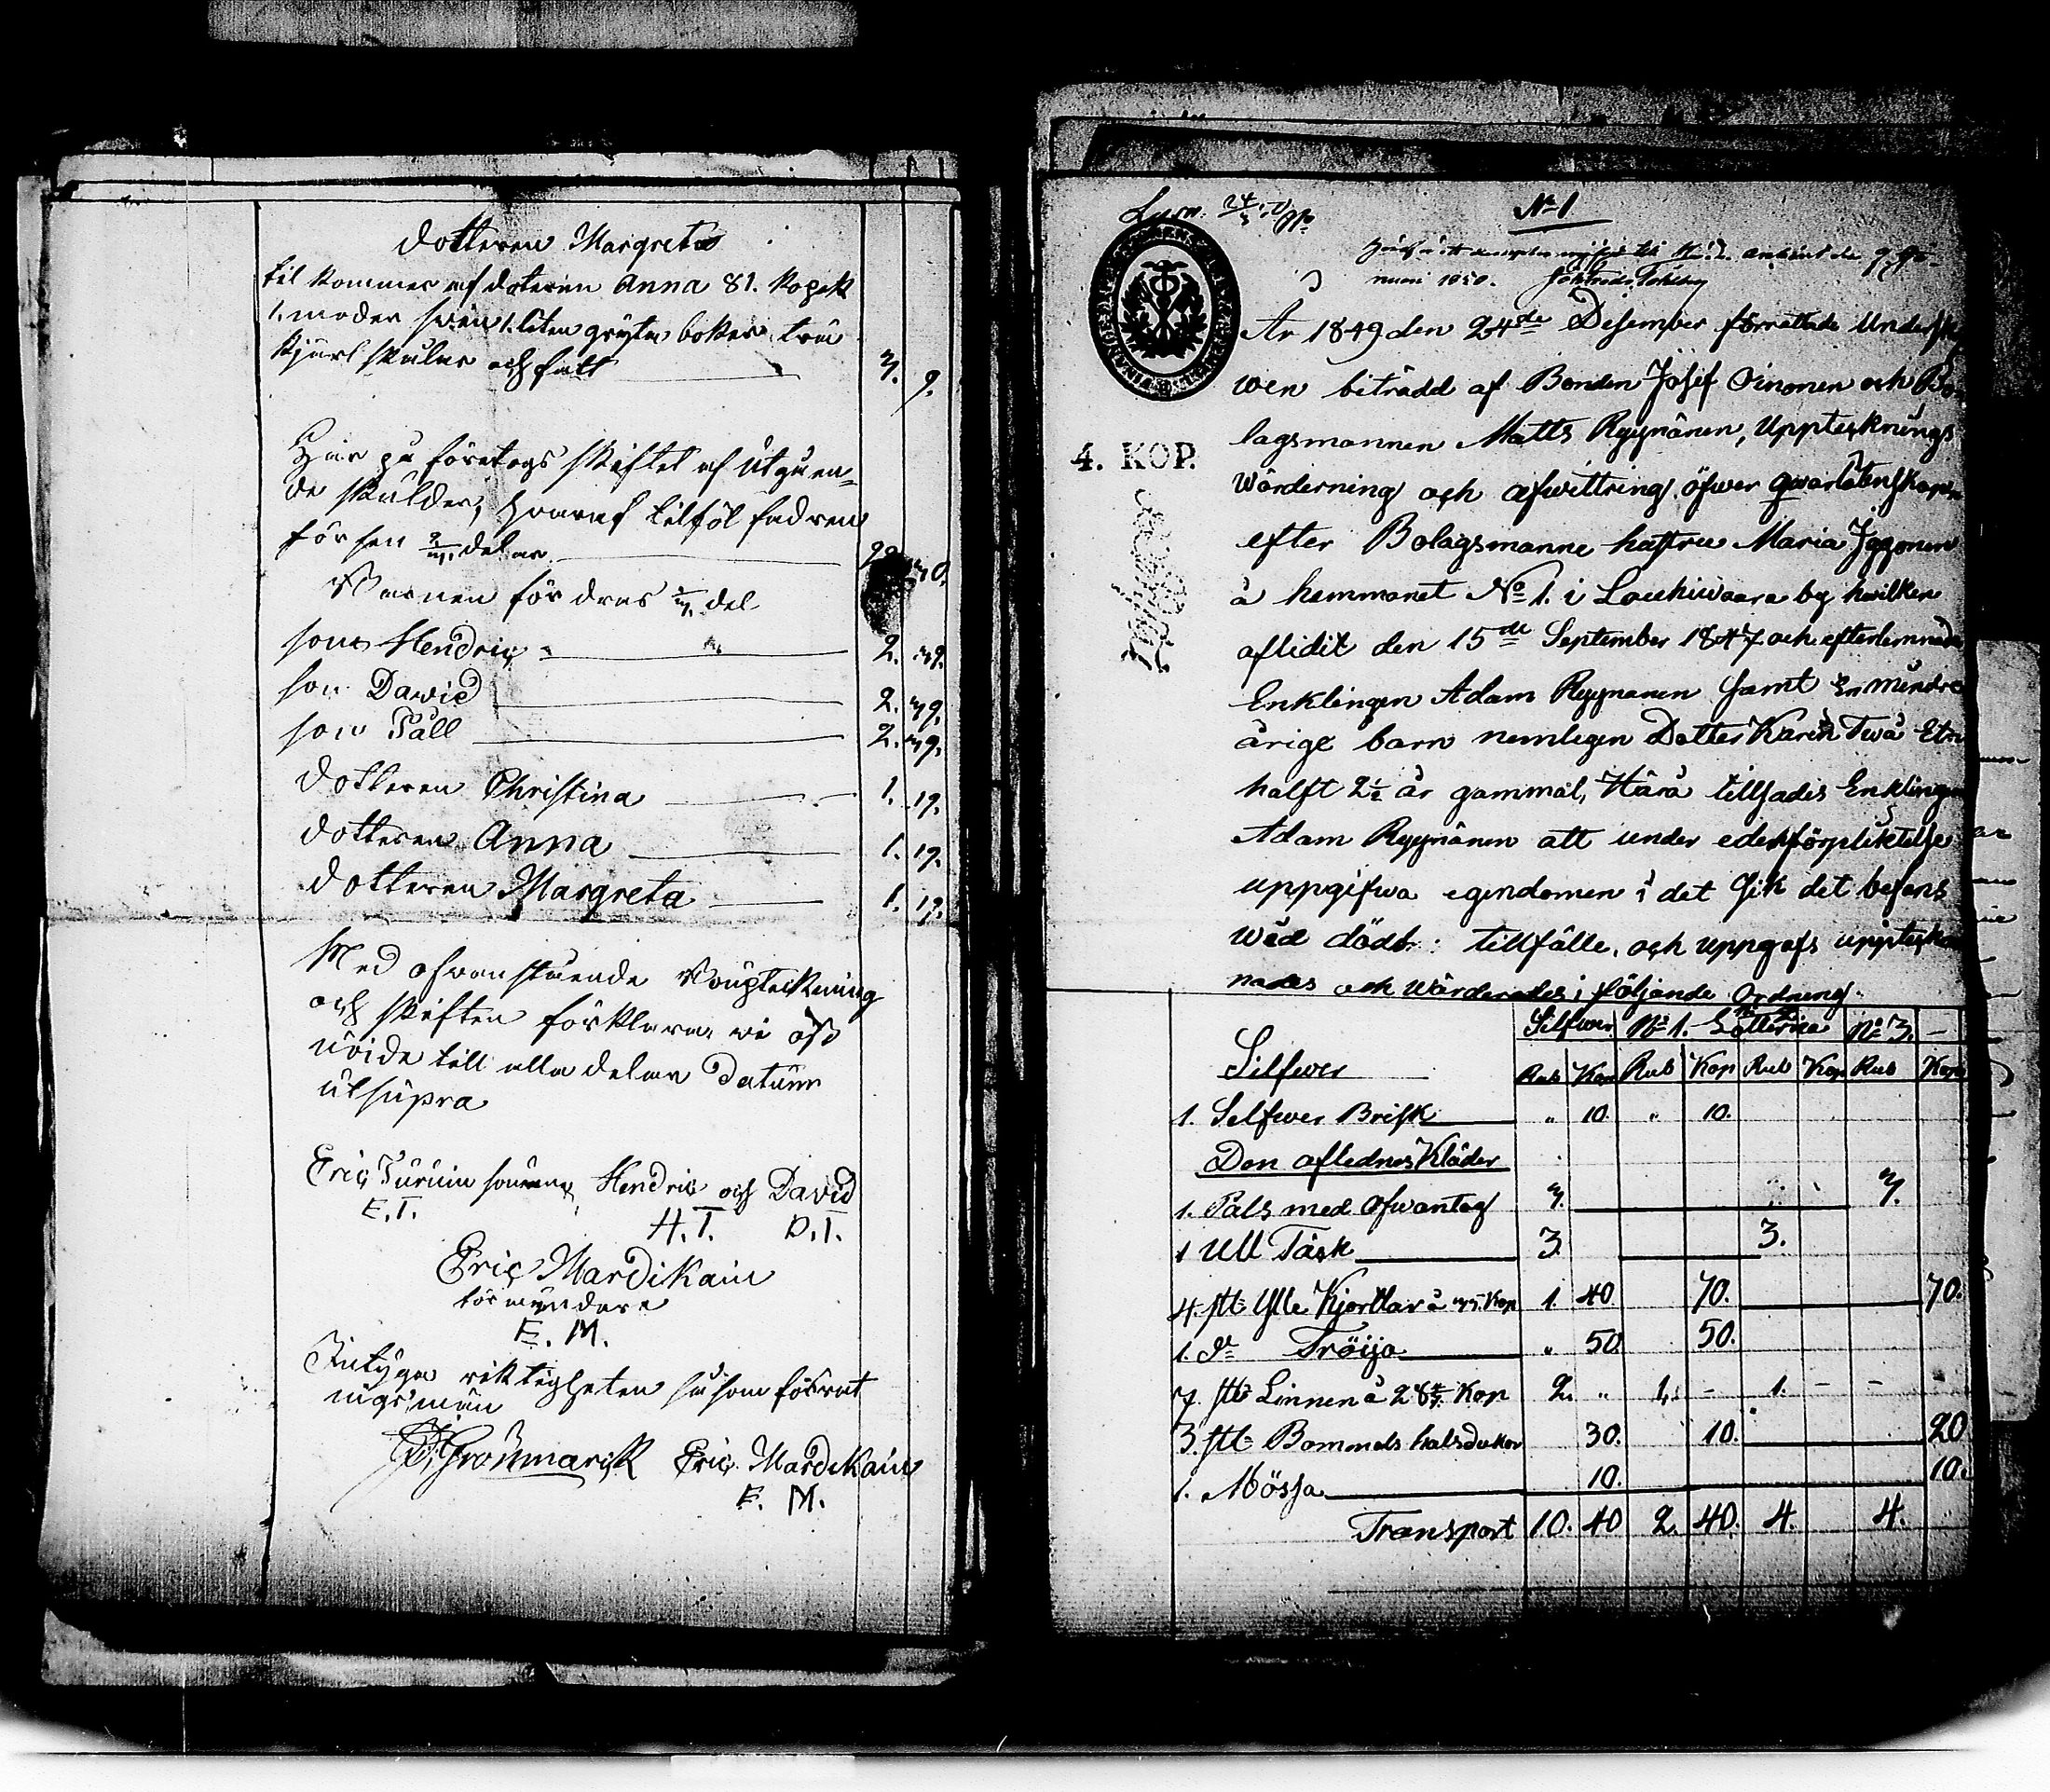 dotteren Margreta
til kommer af doteren Anna 81. kopek
1. moder swin 1. liten gryta boker trä
kjärl skular och fatt 7. 9.
Här på företogs skiftet af utgåen-
de skulder, hvaraf tilföl fadren
för sen delar
Barnen fördras del
sone Hendric 2. 79.
son David 2. 79.
son Påll 2. 79.
dotteren Christina 1. 19.
dotteren Anna 1. 19.
dotteren Margreta 1. 19.
Med ofvanstående Bouptekning
och skiften förklara vi oss
nöida till alla delar Datum
utsupra
Eric Turuin sönerne Hendric och David
E.T. H.T. D.T.
Eric Mardikain
förmyndare
E. M.
Intyga riktigheten såsom förrat
nigsmän
Grönmarck Eric Mardikain
E. M.
No 1
nuari 1850.
4. KOP.
År 1849 den 24de Desember förrättade Underskr
wen biträdd af Bonden Josef Oinonen och Bo-
lagsmannen Matts Ryynänen, Upptecknings
Wärdering och afwittring öfwer qwarlåtenskapen
efter Bolagsmanne hustru Maria
å hemmanet No 1. i Louhiwaara by hwilken
aflidit den 15de September 1847 och efterlemnade
Enklingen Adam Ryynänen samt En mindre
årige barn nemligen Dotter Karin Twå Ett
halft 2½ år gammal, Härå tillsades Enklingen
Adam Ryynänen att under edsförpliktelse
uppgifwa egendomen i det sik det befans
wid döds: tillfälle, och uppgafs uppteckn
nades och wärderades i följande Ordning.
Silfwer No 1. Lotterna No 3. –
Silfwer Rub Kop Rub Kop Rub Kop Rub Kop
1. Silfwer Brisk „ 10. „ 10.
Den aflednes Kläder
1. Päls med Ofwantag 7. 7.
1 Ull Täck 3. 3.
4. stk Ylle Kjortlar à Kop 1. 40 70. 70.
1. do Tröija „ 50 50.
7. stk Linnen à 28 4/7 Kop 2. „ 1. – 1. – – –
3. stk Bommuls halsdukar 30. 10. 20
1. Mössa 10. 10.
Transport 10. 40 2. 40. 4. 4.